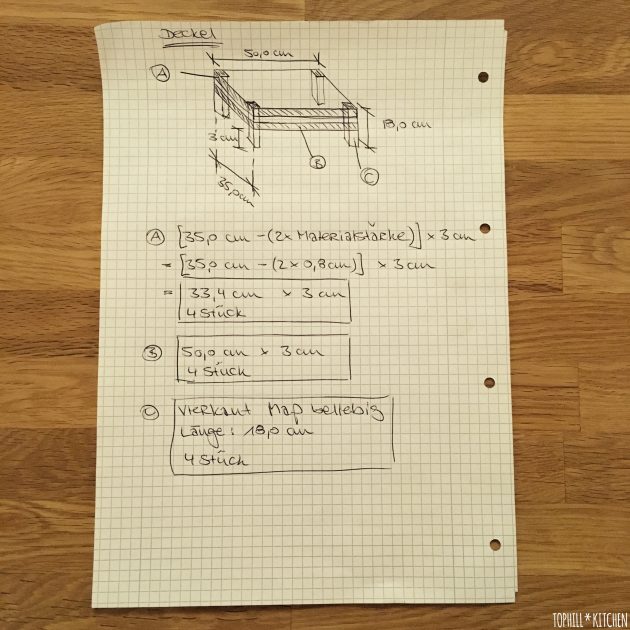 Deckel
50,0 cm
A
18,0 cm
3 cm
B
C
35,0 cm
A [35,0 cm - (2 x Materialstärke)] x 3 cm
= [35,0 cm - (2 x 0,8 cm)] x 3 cm
= 33,4 cm x 3 cm
4 Stück
B 50,0 cm x 3 cm
4 Stück
C Vierkant Maß beliebig
Länge: 18,0 cm
4 Stück
TOPHILL*KITCHEN